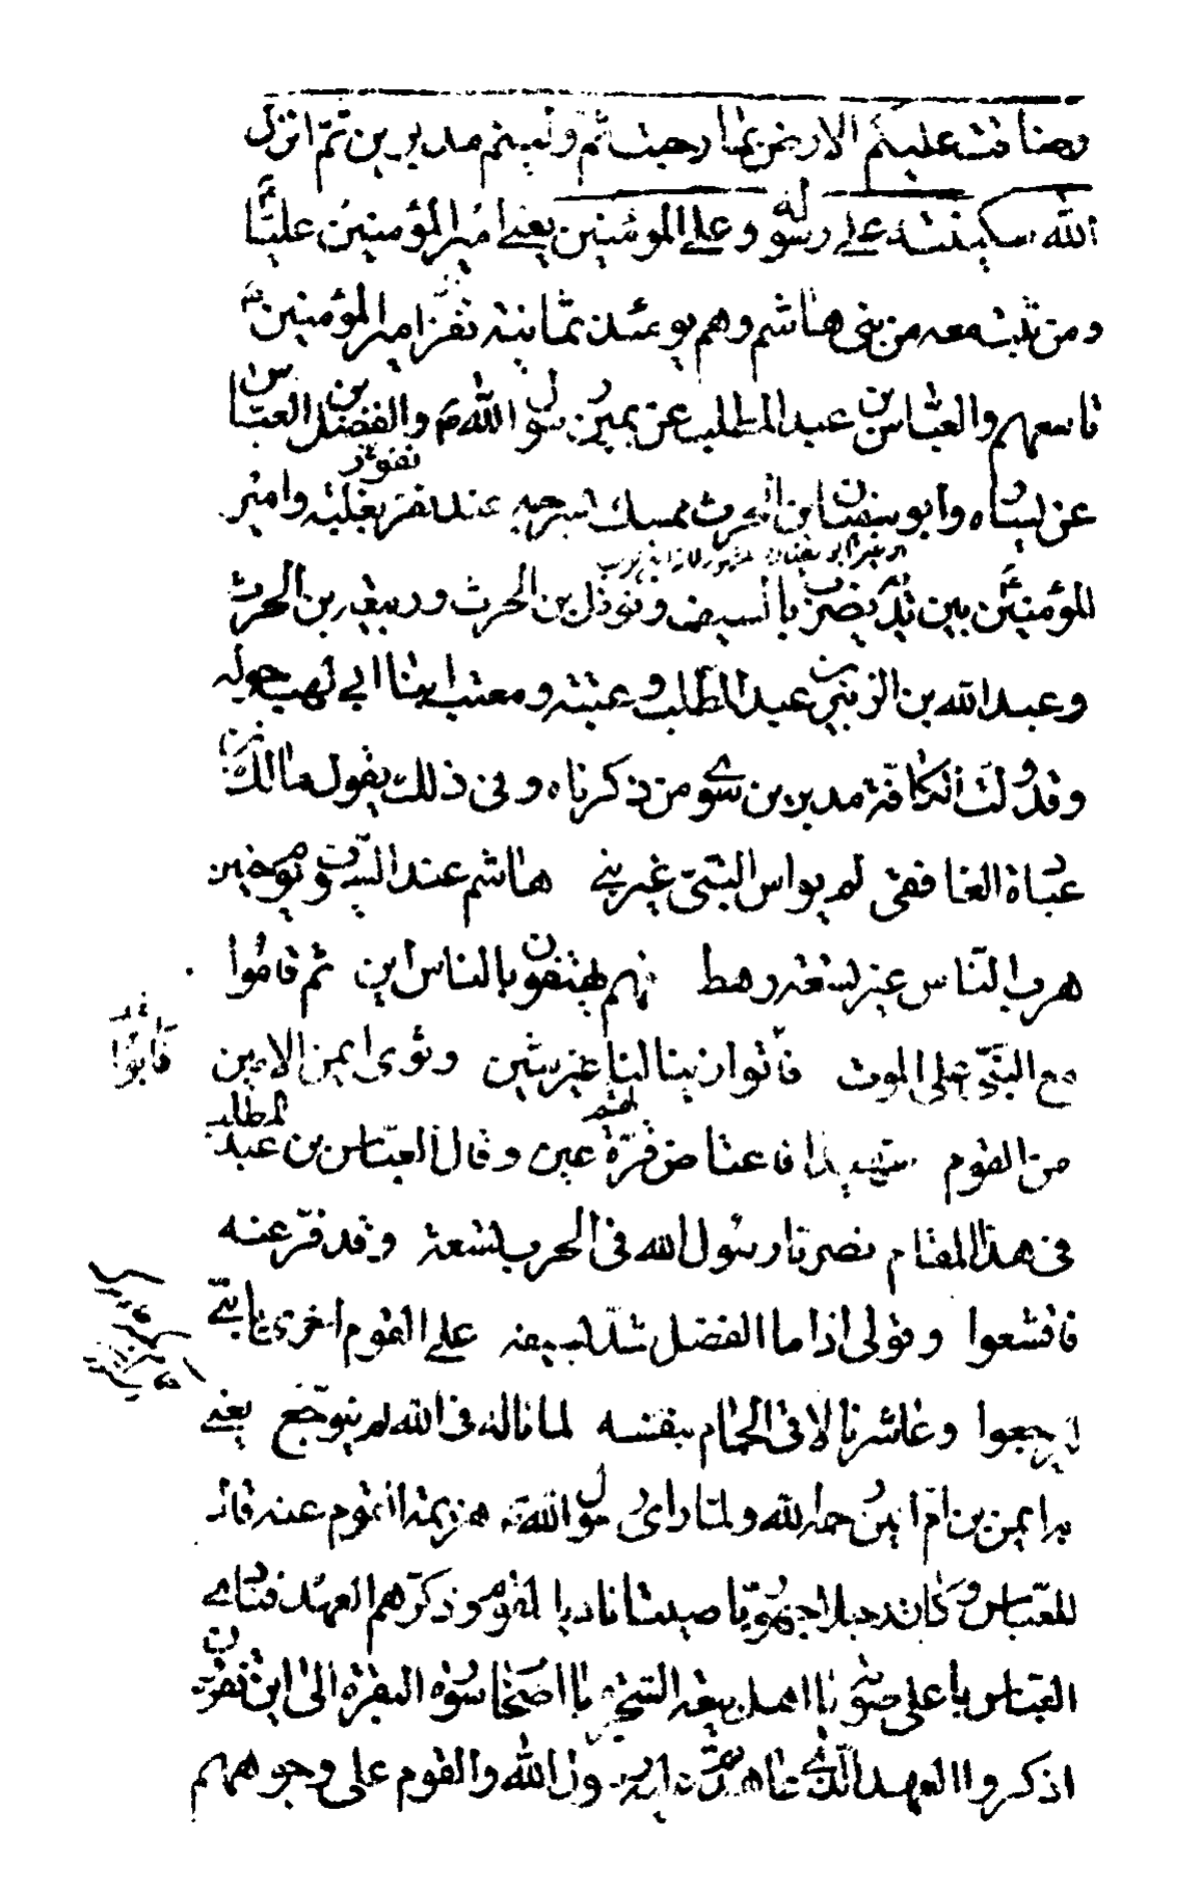 وضاقت عليكم الارض بما رحبت ثم وليتم مدبرين ثم انزل
الله سكينته على رسوله وعلى المؤمنين يعنى امير المؤمنين عليا
ومن ثبت معه من بنى هاشم وهم يومئذ ثمانية نفر امير المؤمنين
تاسعهم والعباس بن عبد المطلب عن يمين رسول الله والفضل بن العباس
عن يساره وابو سفيان بن الحرث ممسك بسرجه عند نفر بغلته وامير
المؤمنين بين يديه يضرب بالسيف ونوفل بن الحرث وربيعة بن الحرث
وعبد الله بن الزبير بن عبد المطلب وعتبة ومعتب ابنا ابى لهب حوله
وقد ولت الكافة مدبرين سوى من ذكرناه وفى ذلك يقول مالك بن
عبادة الغافقى لم يواس النبى غير بنى هاشم عند السيوف يوم حنين
هرب الناس غير تسعة رهط فهم يهتفون بالناس اين ثم قاموا
مع النبى على الموت فاتوا زينا لنا غير شين وثوى ايمن الامين
فابوا
من القوم شهيدا فاعتاض قرة عين وقال العباس بن عبد المطلب
فى هذا المقام نصرنا رسول الله فى الحرب تسعة وقد فر عنه
فاقشعوا وقولى اذا ما الفضل شد بسيفه على القوم اخرى يا بنى
ليرجعوا وعاشرنا لاقى الحمام بنفسه لما ناله فى الله لم يتوجع يعنى
به ايمن بن ام ايمن رحمه الله ولما راى رسول الله هزيمة القوم عنه قال
للعباس وكان رجلا جهوريا صيتا ناد بالقوم وذكرهم العهد فنادى
العباس باعلى صوته يا اهل بيعة الشجرة يا اصحاب سورة البقرة الى اين تفرون
اذكروا العهد الذى عاهدتم عليه رسول الله والقوم على وجوههم